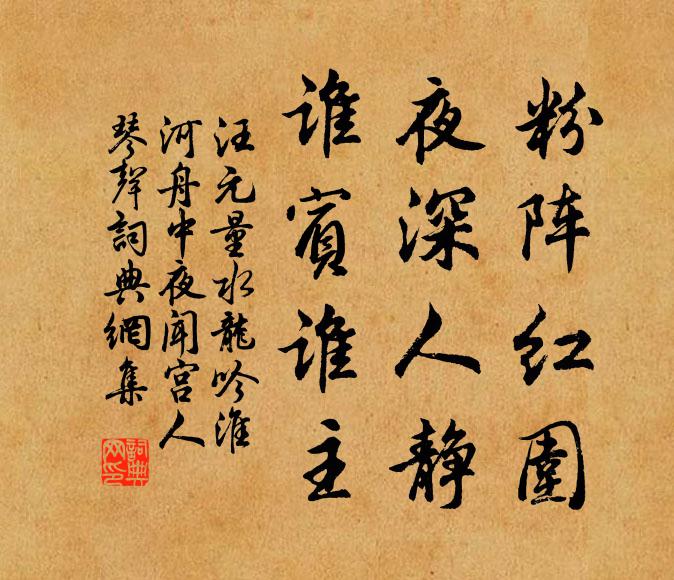 粉阵红圍
夜深人静
谁賓谁主
汪元量水龍吟淮
河舟中夜闻宫人
琴聲詞典網集
詞典网印